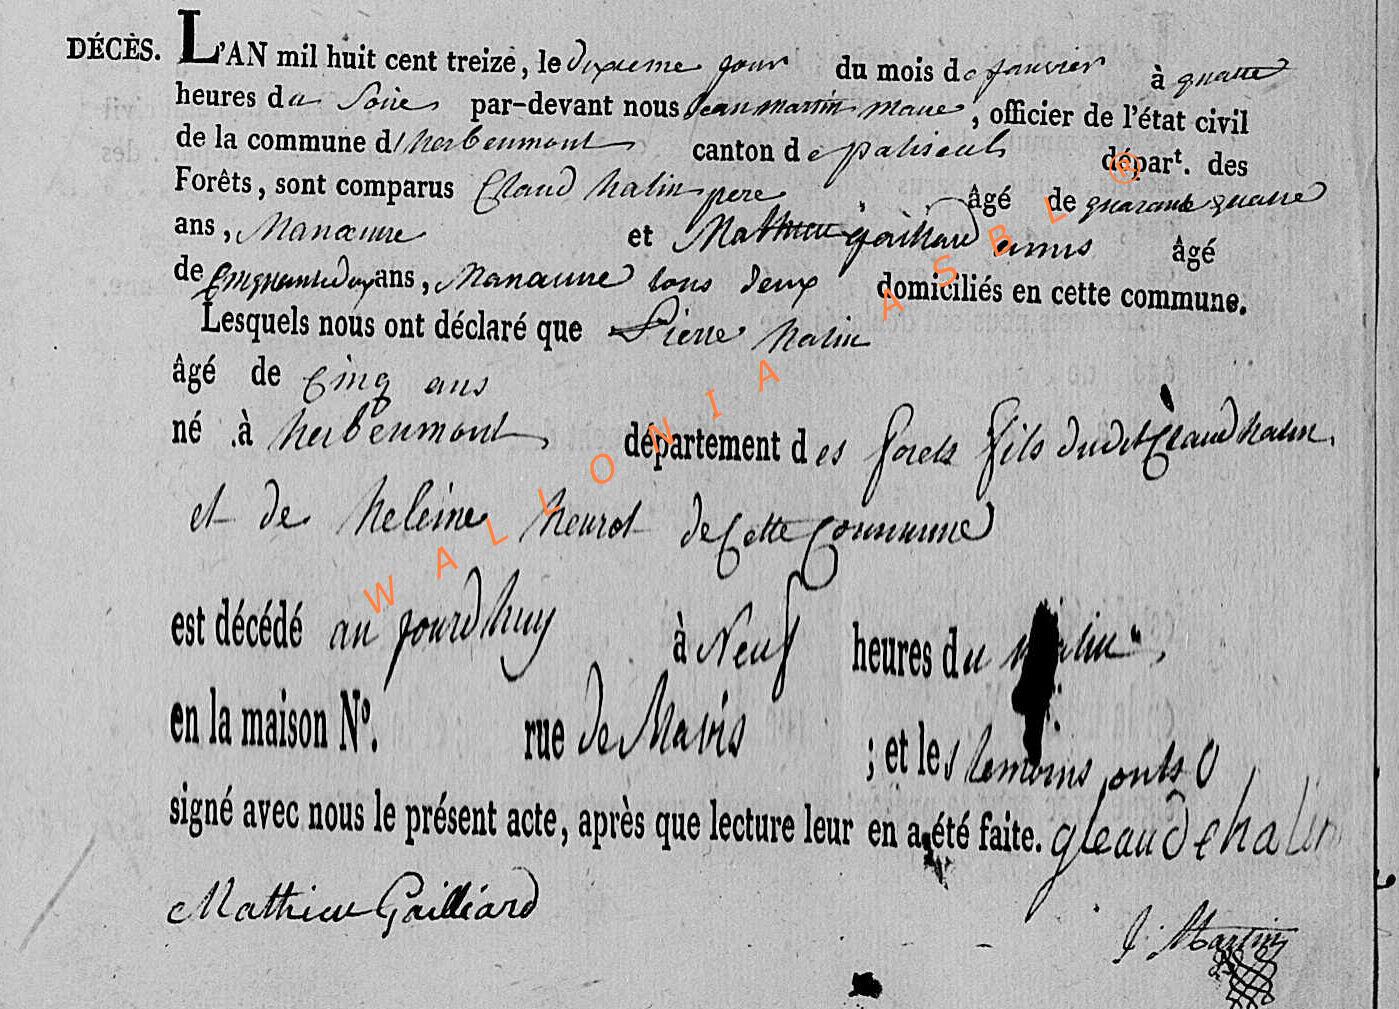 DÉCÈS. L'AN mil huit cent treize, le dixieme jour du mois de janvier à quatre
heures du Soire par-devant nous Jean martin maue, officier de l'état civil
de la commune d'herbeumont canton de paliseul départ. des
Forêts, sont comparus Claud halin pere âgé de quarante quatre
ans, Manœuvre et Mathieu gaillard amis âgé
de Cinquante deux ans, Manœuvre tous deux domiciliés en cette commune.
Lesquels nous ont déclaré que Pierre halin
âgé de Cinq ans
né à herbeumont département des forets fils dudit Claud halin
et de heleine heurot de Cette Commune
est décédé aujourdhuy à Neuf heures du matin,
en la maison N°. rue de Mavis ; et les temoins onts
signé avec nous le présent acte, après que lecture leur en a été faite. gleaude halin
Mathieu Gailliard
J. Martin
WALLONIA ASBL @